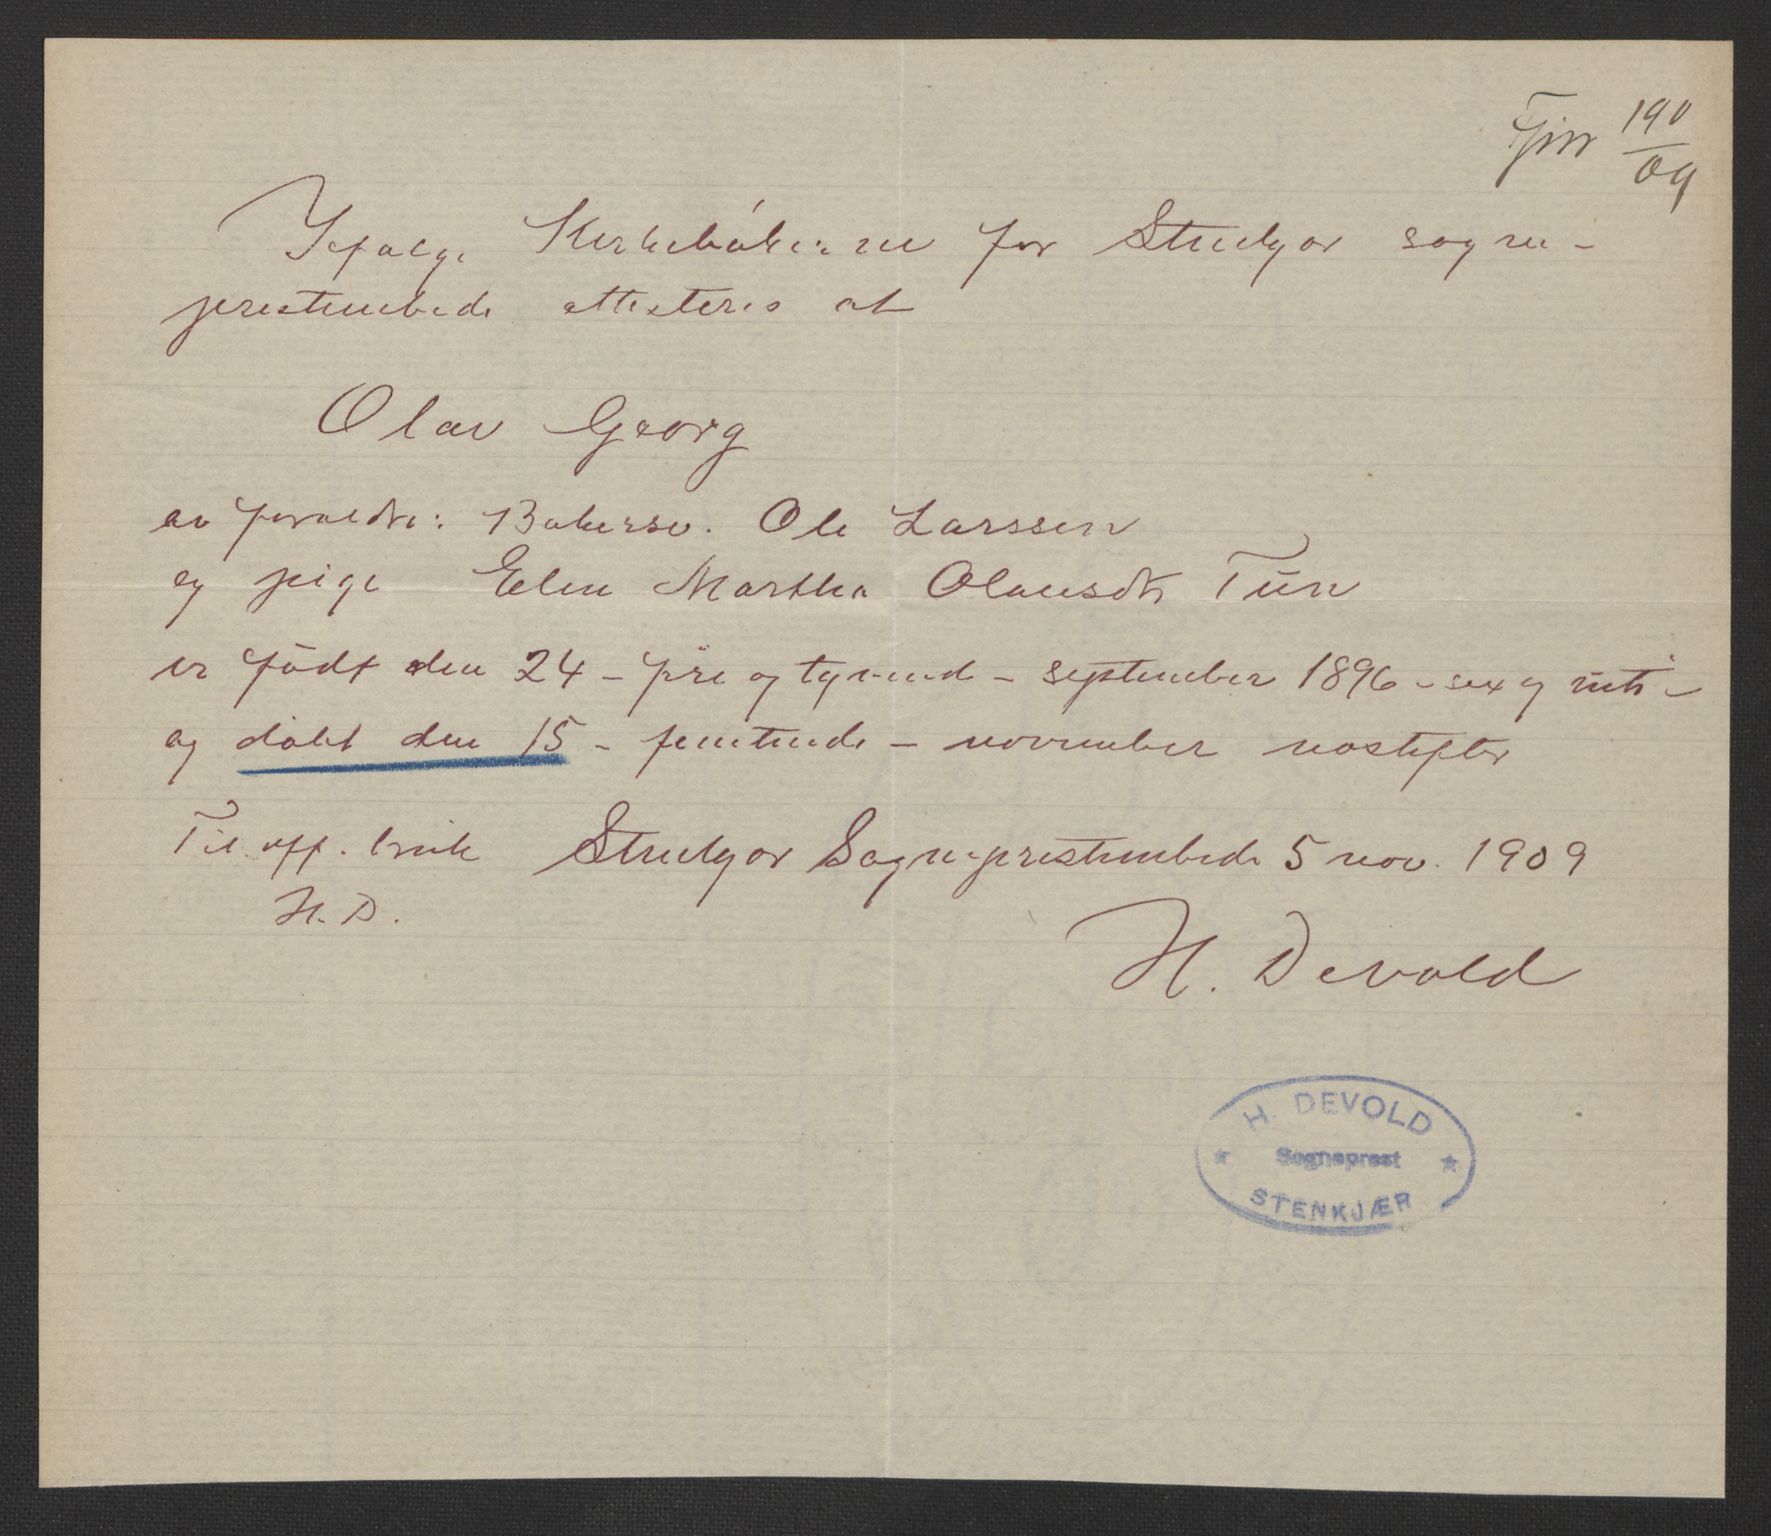 Fjnr 190/09
Ifølge Kirkebøkerne for Stenkjær sogne-
prestembede attesteres at
Olav Georg
av foreldre: Bakersv. Ole Larssen
og pige Elen Martha Olausdtr Tun
er født den 24 - fire og tyvende - september 1896 - sex og niti -
og døbt den 15 - femtende - november næstefter
Til off. bruk Stenkjær Sogneprestembede 5 nov. 1909
H. D.
H. Devold
H. DEVOLD
Sogneprest
STENKJÆR